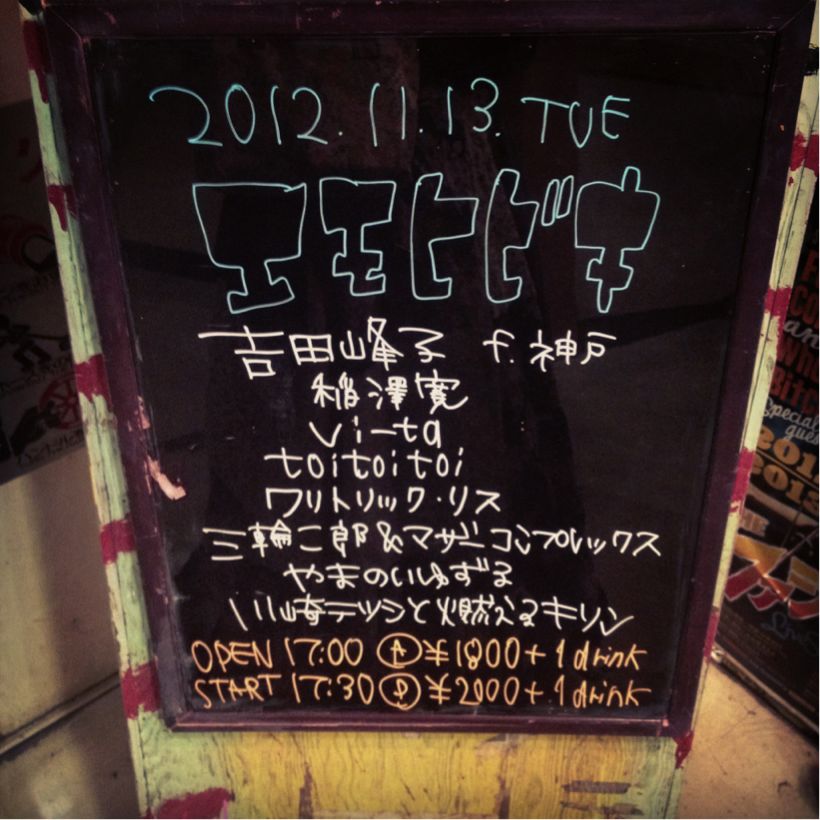 2012.11.13. TUE
エモヒビキ
吉田峰子 f. 神戸
稲澤寛
vi-ta
toitoitoi
ワリトリック・リス
三輪二郎&マザーコンプレックス
やまのいゆずる
川崎テツシと燃えるキリン
OPEN 17:00 Ⓐ ¥1800+1drink
START 17:30 Ⓓ ¥2000+1drink
Special
guest
2012